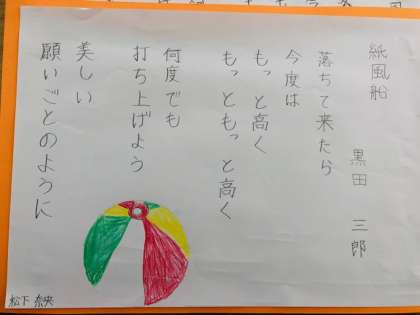 紙風船
黒田 三郎
落ちて来たら
今度は
もっと高く
もっともっと高く
何度でも
打ち上げよう
美しい
願いごとのように
松下 奈央